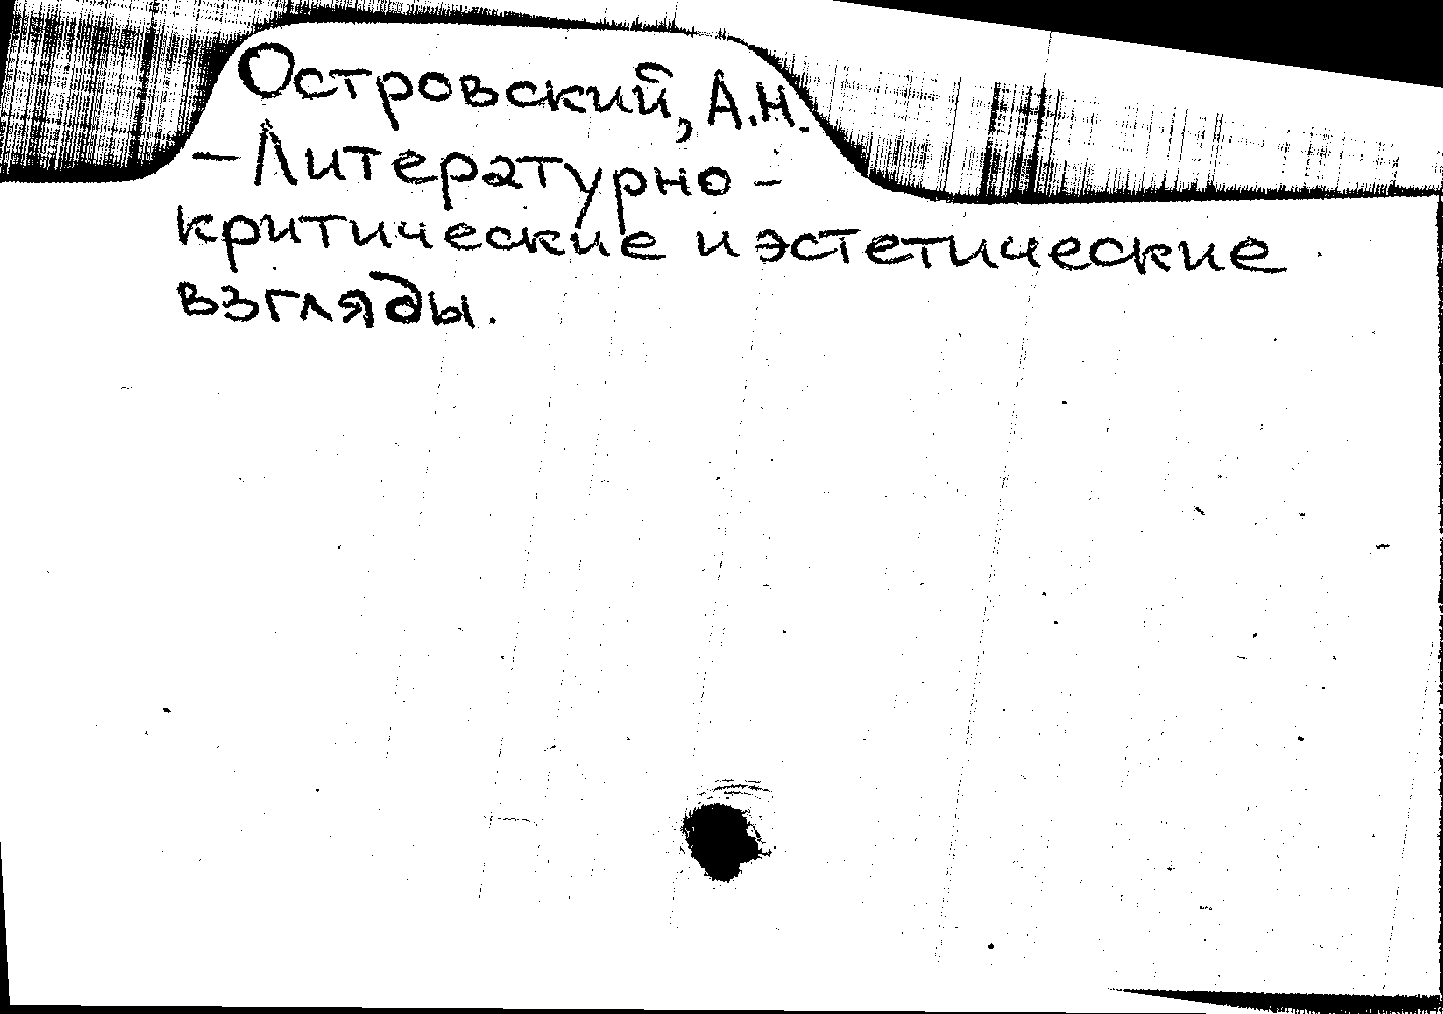 Островский, А.Н.
– Литературно-
критические и эстетические
взгляды.